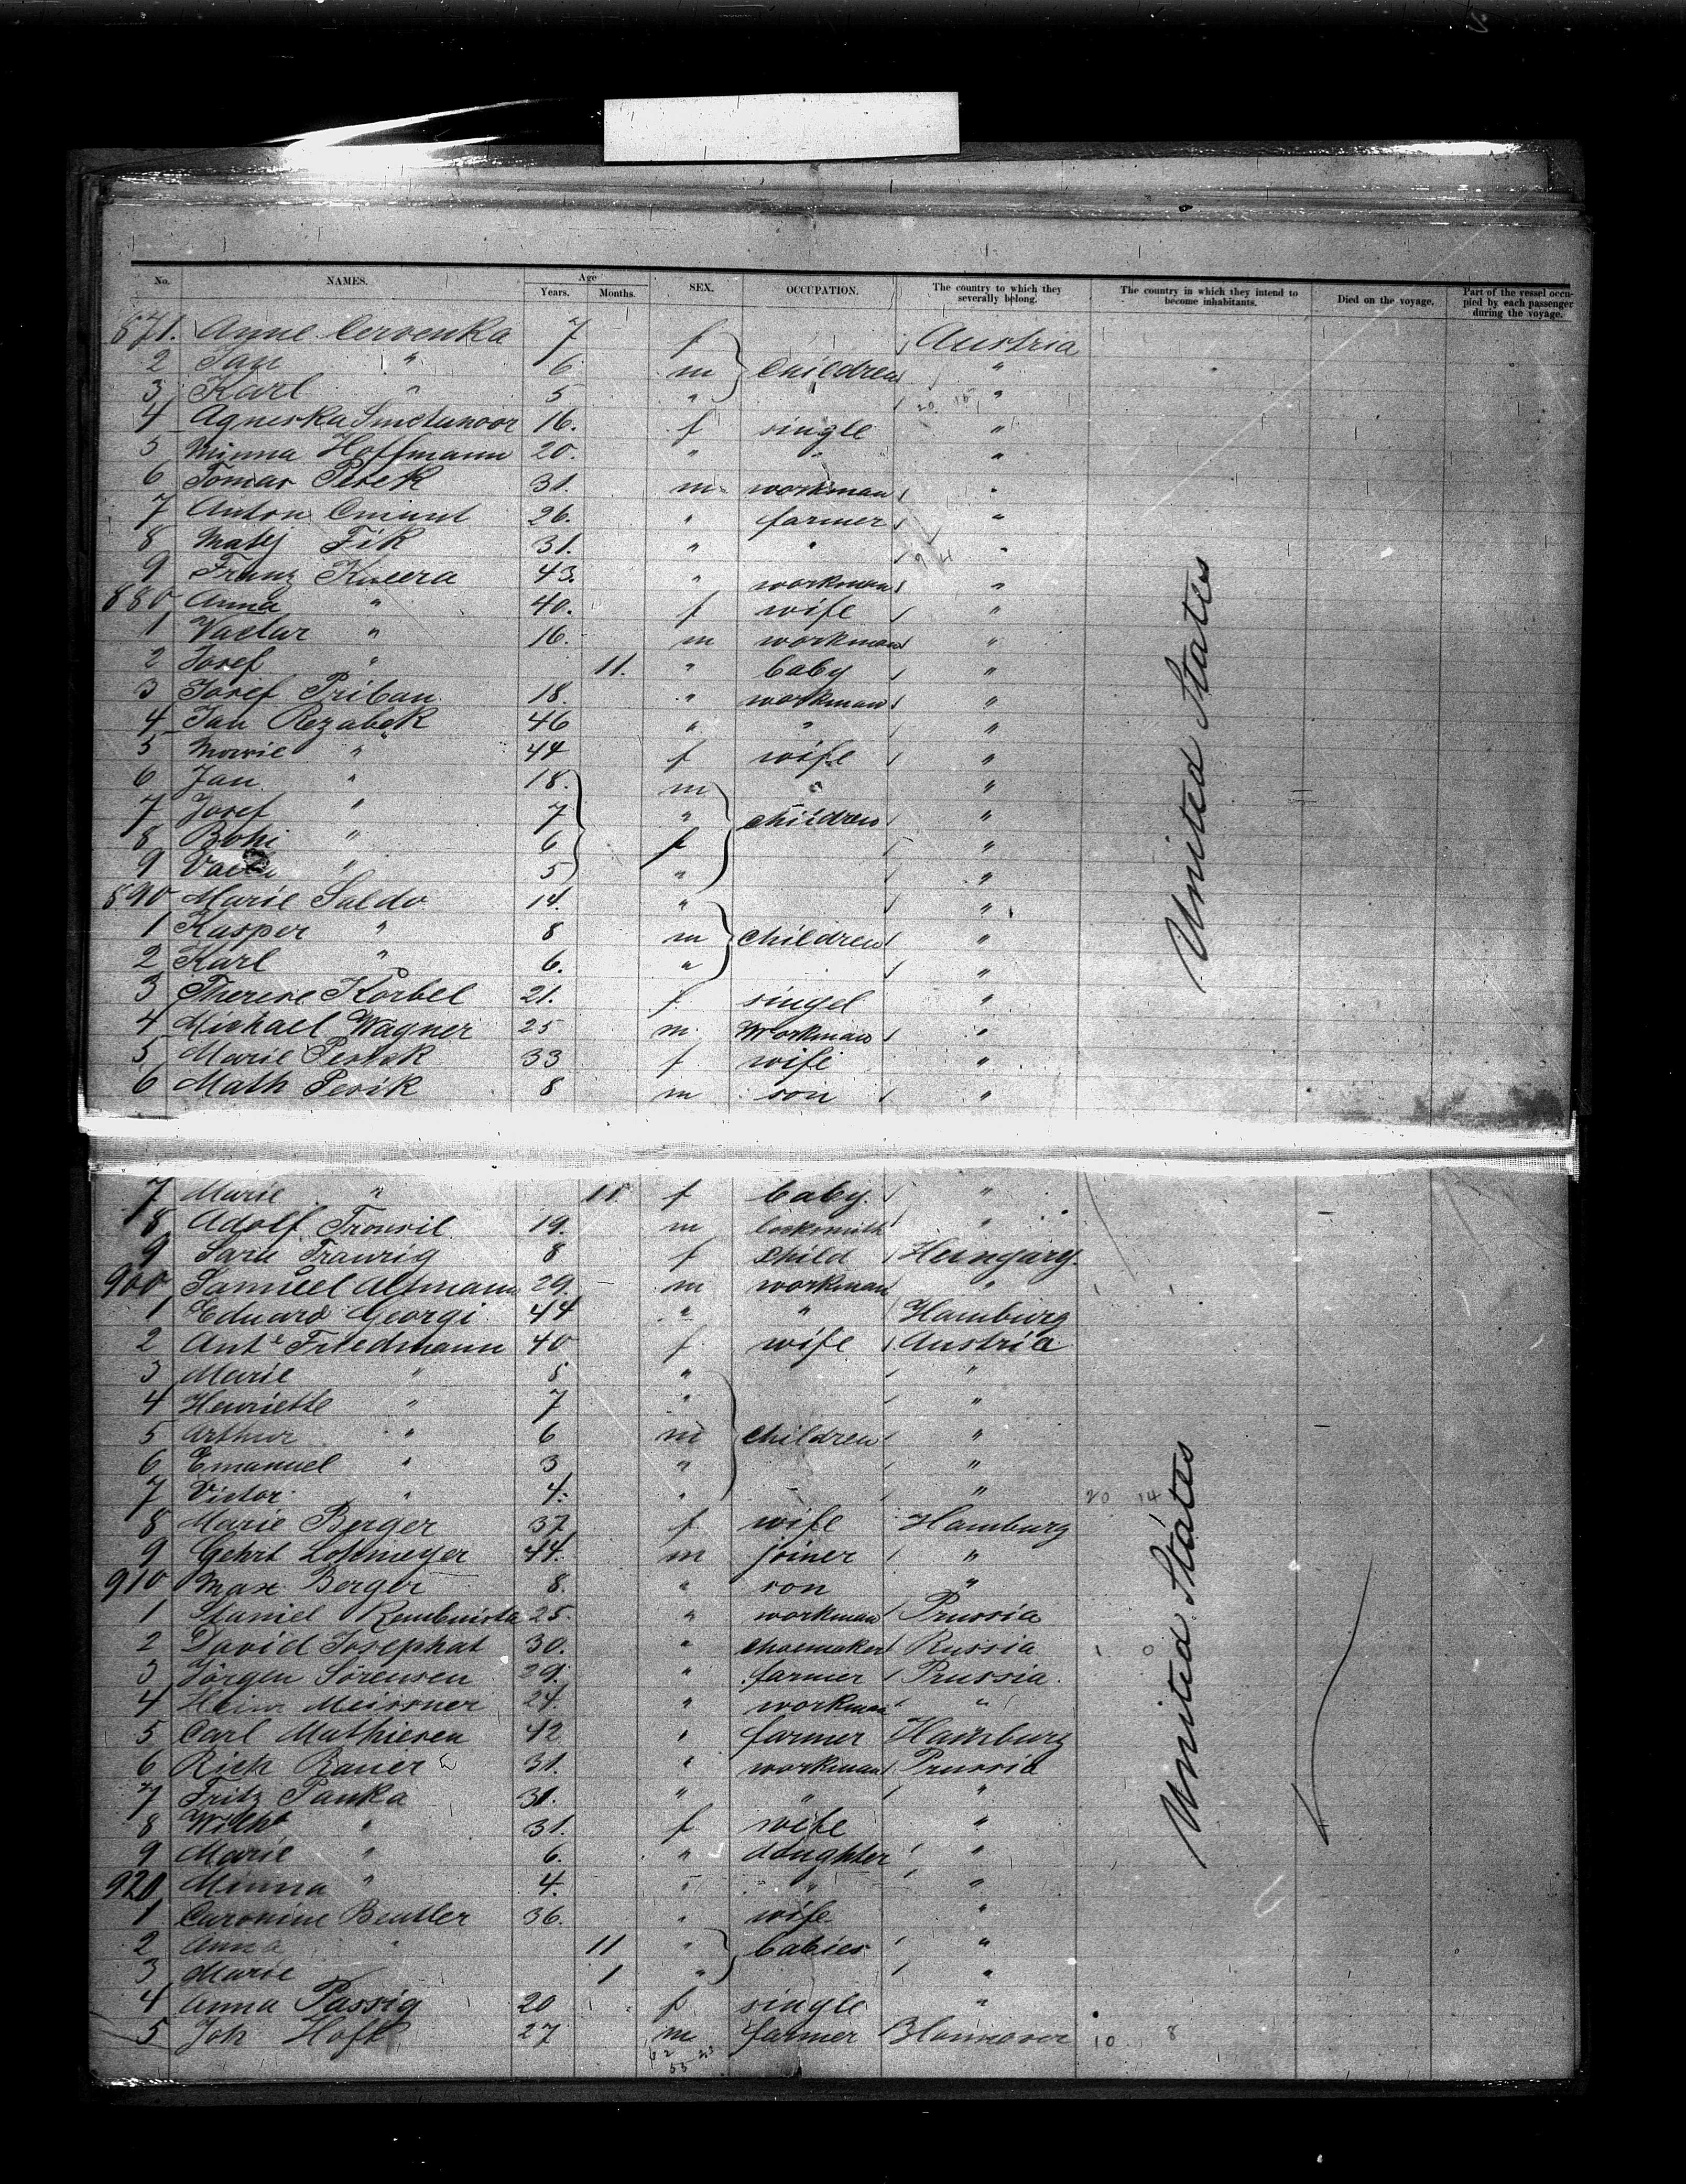 No. NAMES. Age Years. Months. SEX. OCCUPATION. The country to which they severally belong. The country in which they intend to become inhabitants. Died on the voyage. Part of the vessel occupied by each passenger during the voyage.
871. Anne Cervenka 7 f Austria
2 Jan " 6 m children "
3 Karl " 5 " "
4 Agneska 16. f single "
5 Minna Hoffmann 20. " " "
6 Tomas Pesek 31. m workman "
7 Anton 26. " farmer "
8 Matej Fik 31. " " "
9 Franz Kucera 43. " workman "
880 Anna " 40. f wife "
1 Vaclav " 16. m workman "
2 Josef " 11. " baby "
3 Josef Priban 18. " workman "
4 Jan Rezabek 46 " " "
5 Marie " 44 f wife "
6 Jan " 18. m " "
7 Josef " 7 " children "
8 " 6 f "
9 " 5 " "
890 Marie Saldo 14. " "
1 Kasper " 8 m children "
2 Karl " 6. " "
3 Therese Korbel 21. f singel "
4 Michael Wagner 25 m. Workman "
5 Marie 33 f wife "
6 Math Pesik 8 m son "
7 Marie " 11. f baby. "
8 Adolf 19. m locksmith "
9 Sara Traurig 8 f child Hungary.
900 Samuel Altmann 29. m workman "
1 Eduard Georgi 44 " " Hamburg
2 Ant^e Friedmann 40 f wife Austria
3 Marie " 8 " "
4 Henriette " 7 " "
5 Arthur " 6 m children "
6 Emanuel " 3 " "
7 Victor " 4. " " 20 14
8 Marie Berger 37 f wife Hamburg
9 Gehrt Lohmeyer 44. m joiner "
910 Max Berger 8. " son "
1 25. " workman Prussia
2 David Josephat 30. " shoemaker Russia 1 0
3 Jörgen Sörensen 29. " farmer Prussia.
4 Heinr Meissner 24. " workman "
5 Carl Mathiesen 42 " farmer Hamburg
6 Rich Bauer 31. " workman Prussia
7 Fritz Panka 31. " " "
8 Wilh " 31. f wife "
9 Marie " 6. " daughter "
920 Minna " 4. " " "
1 Caroline Beutler 36. " wife "
2 Anna " 11 " babies "
3 Marie 1 " "
4 Anna Passig 20 f single "
5 Joh Hoft 27 m farmer Hannover 10 8
United States
United States